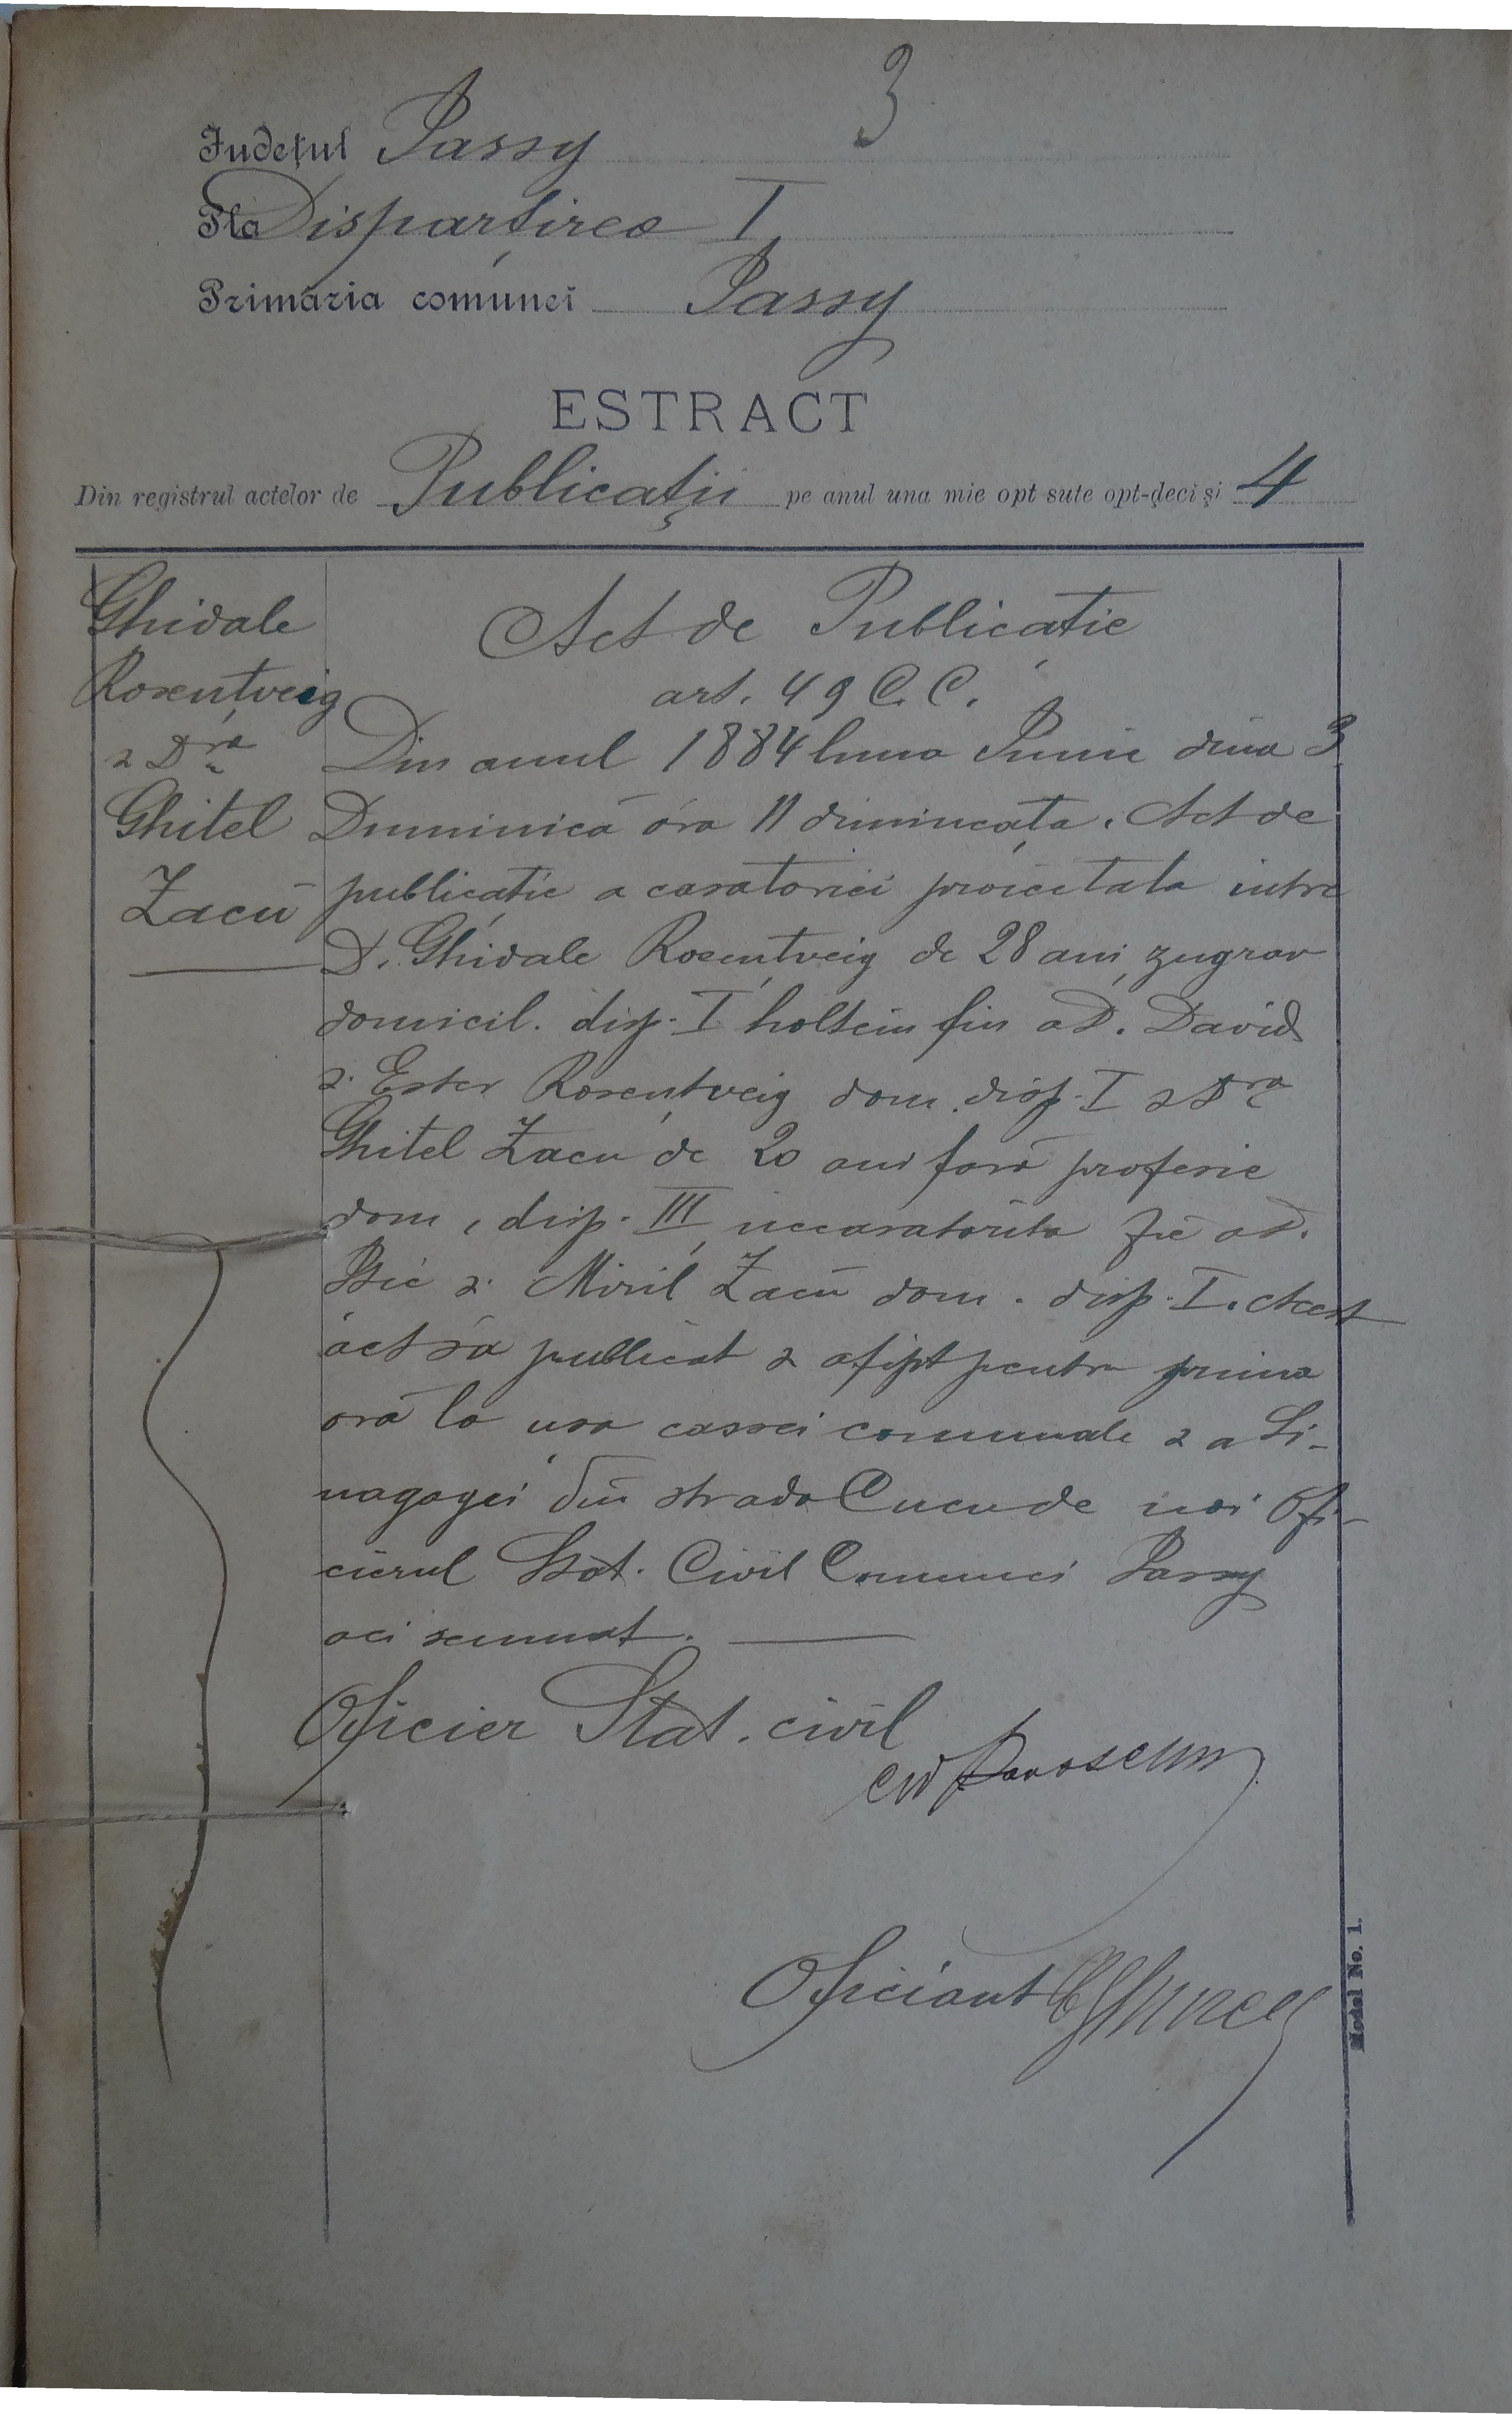 3
Județul Iassy
Pla Dispărțirea I
Primăria comunei Iassy
ESTRACT
Din registrul actelor de Publicații pe anul una mie opt sute opt-deci și 4
Ghidale
Rosențveig
& Dra
Ghitel
Zacŭ
Act de Publicatie
art. 49 C. C.
Din anul 1884 luna Iunie diua 3
Duminică óra 11 dimineața. Act de
publicatie a casatoriei proiectata intre
D. Ghidale Rosențveig de 28 ani, zugrav
domicil. disp. I holtein fiu a D. David
& Ester Rosențveig dom. disp. I & Dra
Ghitel Zacu de 20 ani fară profesie
dom, disp. III, necasatorita fie a D.
Itic & Miril Zacŭ dom. disp. I. Acest
act sa publicat & afipt pentru prima
oră la usa cassei comunale & a Si-
nagogei din strada Cucu de noi Ofi-
cierul Stat. Civil Comunei Iassy
aci semnat.
Oficier Stat. civil
Oficiant
Model No. 1.